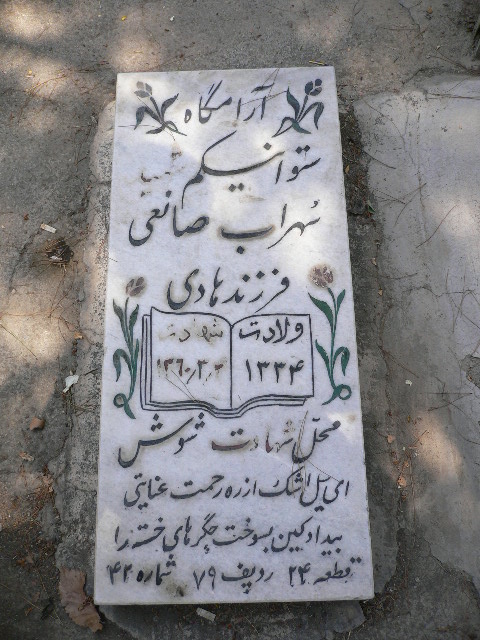 آرامگاه
ستوانیکم شهید
سهراب صانعی
فرزند هادی
ولادت شهادت
۱۳۳۴ ۱۳۶۰/۳/۳
محل شهادت شوش
ای سیل اشک از ره رحمت عنایتی
بیداد کین بسوخت جگرهای خسته را
قطعه ۲۴ ردیف ۷۹ شماره ۴۲